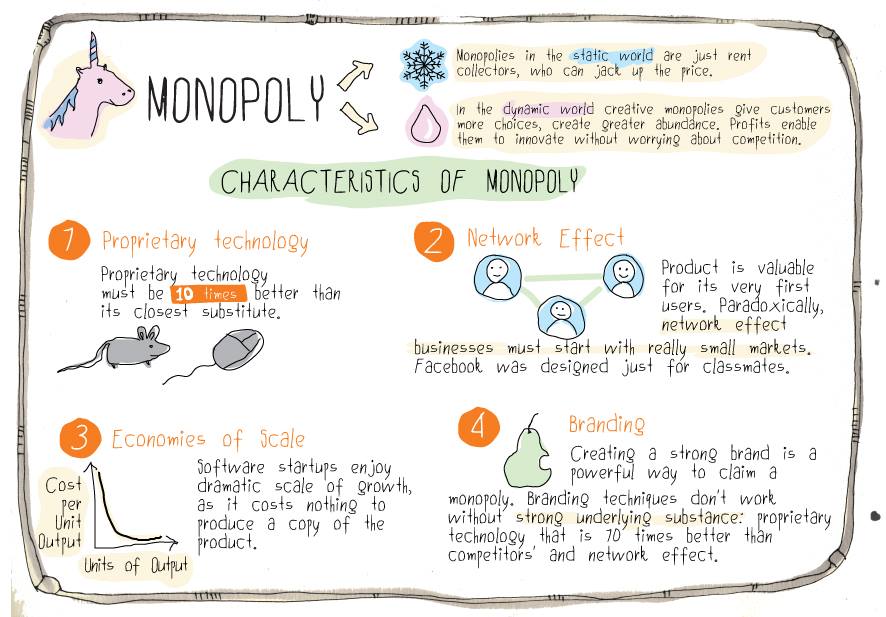 MONOPOLY
Monopolies in the static world are just rent
collectors, who can jack up the price.
In the dynamic world creative monopolies give customers
more choices, create greater abundance. Profits enable
them to innovate without worrying about competition.
CHARACTERISTICS OF MONOPOLY
1 Proprietary technology
Proprietary technology
must be 10 times better than
its closest substitute.
2 Network Effect
Product is valuable
for its very first
users. Paradoxically,
network effect
businesses must start with really small markets.
Facebook was designed just for classmates.
3 Economies of Scale
Cost
per
Unit
Output
Units of Output
Software startups enjoy
dramatic scale of growth,
as it costs nothing to
produce a copy of the
product.
4 Branding
Creating a strong brand is a
powerful way to claim a
monopoly. Branding techniques don't work
without strong underlying substance: proprietary
technology that is 10 times better than
competitors' and network effect.